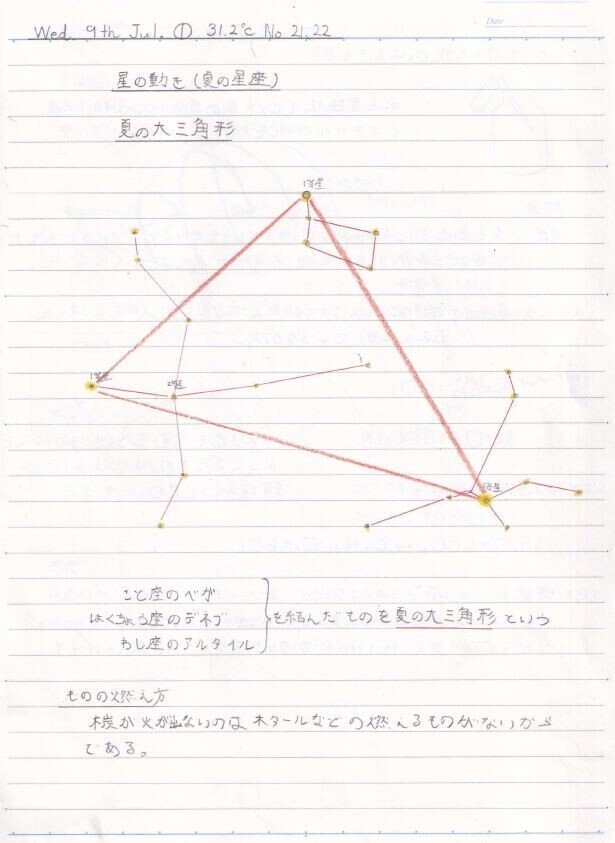 Date
Wed. 9th Jul. ① 31.2℃ No 21,22
星の動き(夏の星座)
夏の大三角形
1等星
1等星
2等星
1等星
こと座のベガ
はくちょう座のデネブ
わし座のアルタイル
を結んだものを夏の大三角形という
ものの燃え方
木炭が火が出ないのは木タールなどの燃えるものがないから
である。